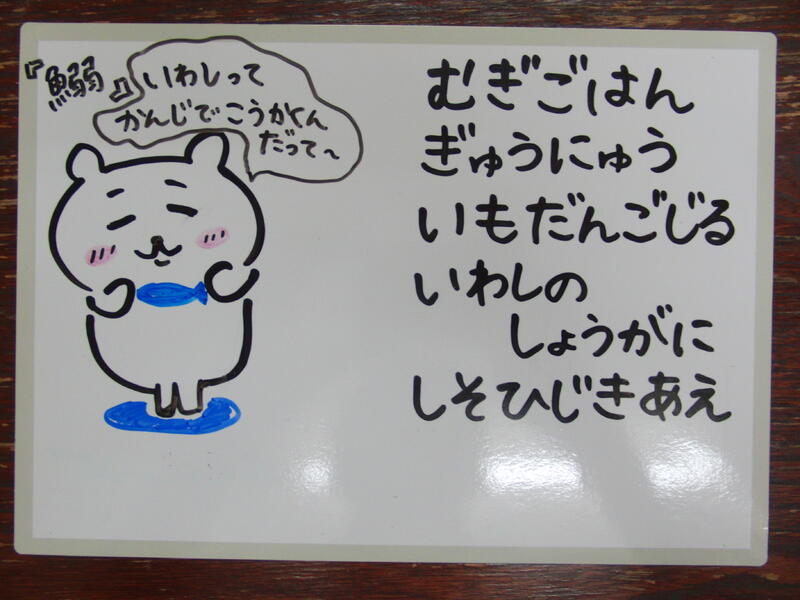 『鰯』
いわしって
かんじでこうかくん
だって～
むぎごはん
ぎゅうにゅう
いもだんごじる
いわしの
しょうがに
しそひじきあえ